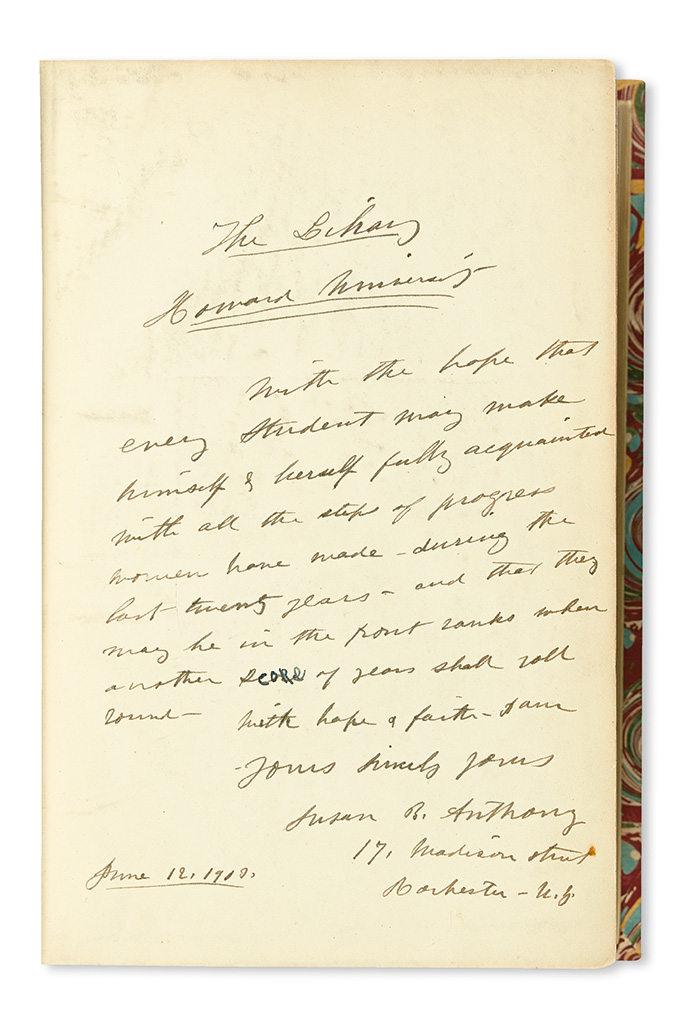 The Library
Howard University
With the hope that
every student may make
himself & herself fully acquainted
with all the steps of progress
women have made - during the
last twenty years - and that they
may be in the front ranks when
another score of years shall roll
round -
With hope & faith - I am
Yours Sincerely yours
Susan B. Anthony
17, Madison street
Rochester - N.Y.
June 12.